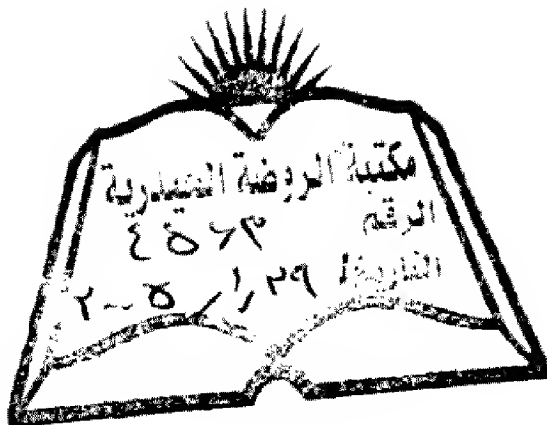 مكتبة الروضة الحيدرية
الرقم ٤٥٧٣
التاريخ ٢٩ / ١ / ٢٠٠٥